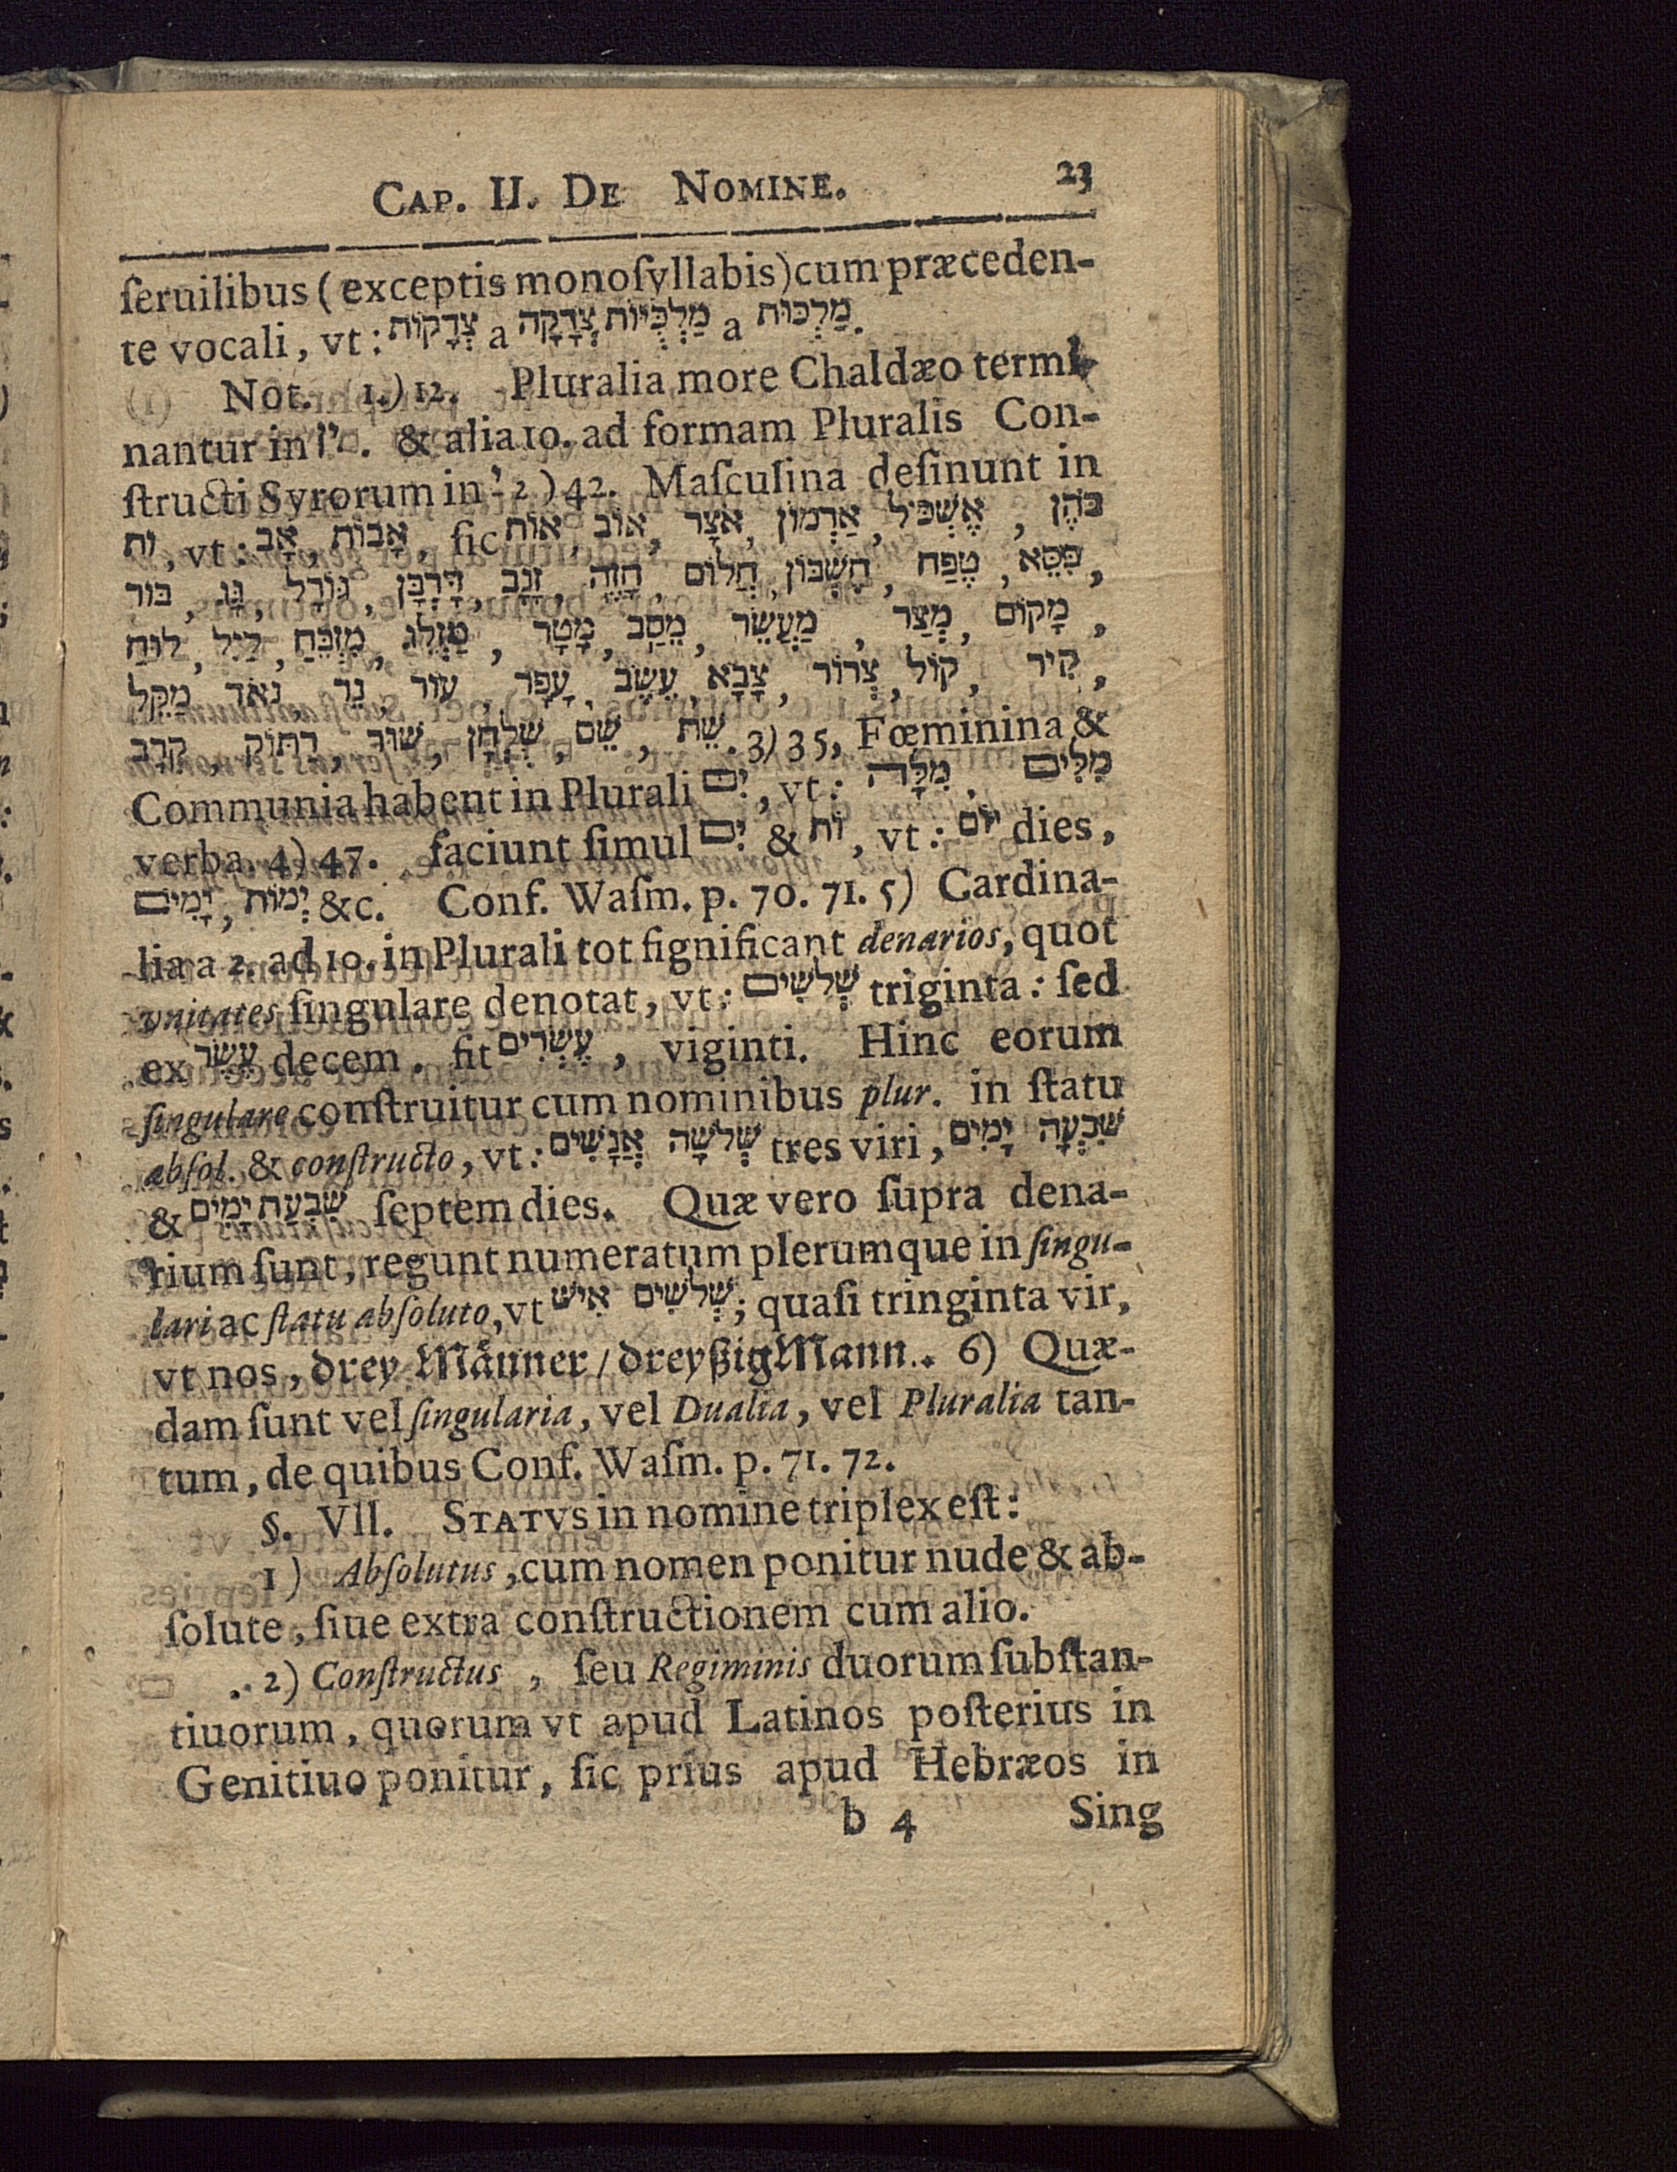 CAP. II. DE NOMINE. 23
ſeruilibus (exceptis monoſyllabis) cum præceden-
te vocali, vt: צְדָקוֹת a צְדָקָה מַלְכֻּיּוֹת a מַלְכוּת.
Not. 1.) 12. Pluralia more Chaldæo termi-
nantur in ין. & alia 10. ad formam Pluralis Con-
ſtructi Syrorum in ־ַי 2) 42. Maſculina deſinunt in
וֹת, vt: אָב, אָבוֹת, ſic אוֹת, אוֹב, אֹצָר, אַרְמוֹן, אֶשְׁכּיל, בֹּהֶן,
בּוֹר, גָּג, גּוֹרָל, דָּרְבָּן, זָנָב, חָזֶה, חֲלוֹם, חֶשְׁבּוֹן, טֶפַח, כִּסֵּא,
לוּחַ, לַיִל, מִזְבֵּחַ, מַזְלֵג, מָטָר, מֵסַב, מַעֲשֵׂר, מְצַר, מָקוֹם,
מַקֵּל, נֹאד, נֵר, עוֹר, עָפָר, עֵשֶׂב, צָבָא, צְרוֹר, קוֹל, קִיר,
קְרָב, רַתּוֹק, שׁוּר, שֻׁלְחָן, שֵׁם, שֵׁת. 3) 35, Fœminina &
Communia habent in Plurali ־ִים, vt: מִלָּה. מִלִּים
verba. 4) 47. faciunt ſimul ־ִים & וֹת, vt: יוֹם dies,
יָמִים, יְמוֹת &c. Conf. Waſm. p. 70. 71. 5) Cardina-
lia a 2. ad 10. in Plurali tot ſignificant denarios, quot
vnitates ſingulare denotat, vt: שְׁלֹשִׁים triginta: ſed
ex עֶשֶׂר decem. fit עֶשְׂרִים, viginti. Hinc eorum
ſingulare conſtruitur cum nominibus plur. in ſtatu
abſol. & conſtructo, vt: שְׁלֹשָׁה אֲנָשִׁים tres viri, שִׁבְעָה יָמִים
& שִׁבְעַת יָמִים ſeptem dies. Quæ vero ſupra dena-
rium ſunt, regunt numeratum plerumque in ſingu-
lari ac ſtatu abſoluto, vt שְׁלֹשִׁים אִישׁ; quaſi tringinta vir,
vt nos, drey Männer / dreyßig Mann. 6) Quæ-
dam ſunt vel ſingularia, vel Dualia, vel Pluralia tan-
tum, de quibus Conf. Waſm. p. 71. 72.
§. VII. STATVS in nomine triplex eſt:
1) Abſolutus, cum nomen ponitur nude & ab-
ſolute, ſiue extra conſtructionem cum alio.
2) Conſtructus, ſeu Regiminis duorum ſubſtan-
tiuorum, quorum vt apud Latinos poſterius in
Genitiuo ponitur, ſic prius apud Hebræos in
b 4 Sing